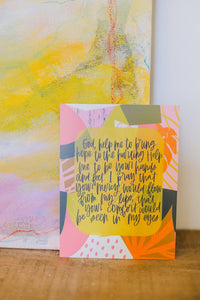 God, help me to bring
hope to the hurting. Help
me to be your hands
and feet. I pray that
your mercy would flow
from my lips, that
your comfort would
be seen in my eyes